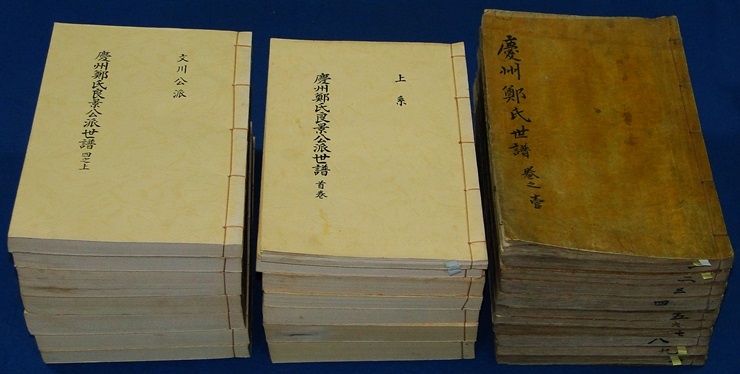 文川公派
慶州鄭氏良景公派世譜 四之上
上系
慶州鄭氏良景公派世譜 首卷
慶州鄭氏世譜 卷之壹
二
三
四
五
六
七
八
九